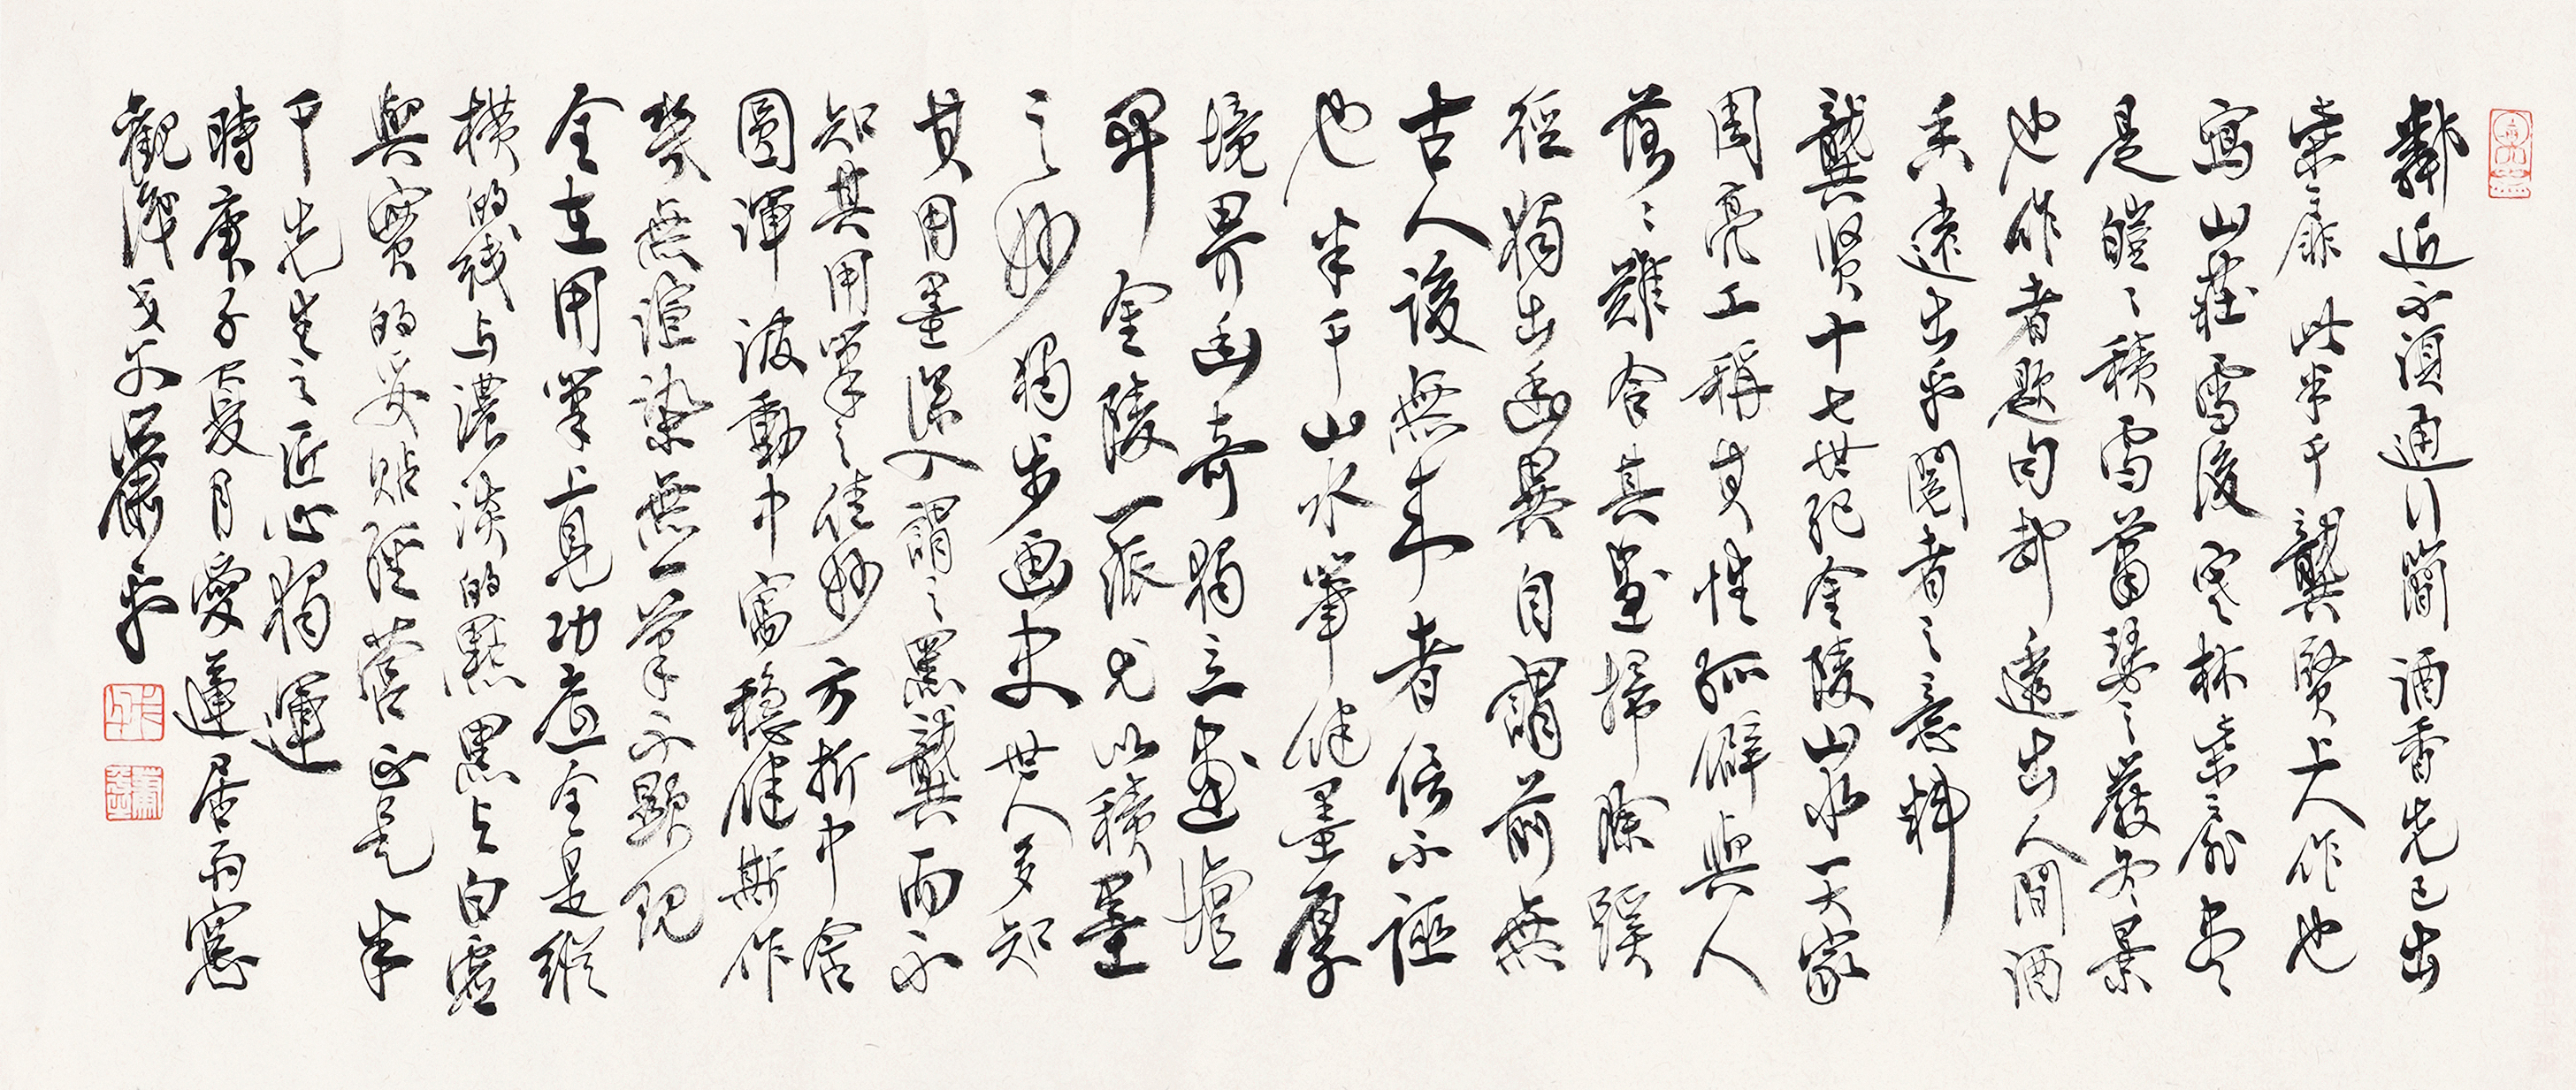 鄰近不須通一簡酒香先已出
柴扉此半千龔賢上人作也
寫山莊雪後寒林柴扉盡
是皚皚積雪蕭瑟之嚴冬景
也作者題句却遠出人間酒
香遠出乎閱者之意料
龔賢十七世紀金陵山水一大家
周亮工稱其性孤僻與人
落落難合其畫掃除蹊
徑獨出幽異自謂前無
古人後無來者信不誣
也半千山水筆健墨厚
境界幽奇獨立畫壇
單金陵一派尤以積墨
之妙獨步畫史世人多知
其用墨深人謂之黑龔而不
知其用筆之佳妙方折中含
圓渾波動中寓穩健斯作
幾無渲染無一筆不顯現
全在用筆上見功底全是縱
橫的綫與濃淡的點黑與白虛
與實的妥貼經營正是半
千先生之匠心獨運
時庚子夏月愛蓮居雨窗
觀後